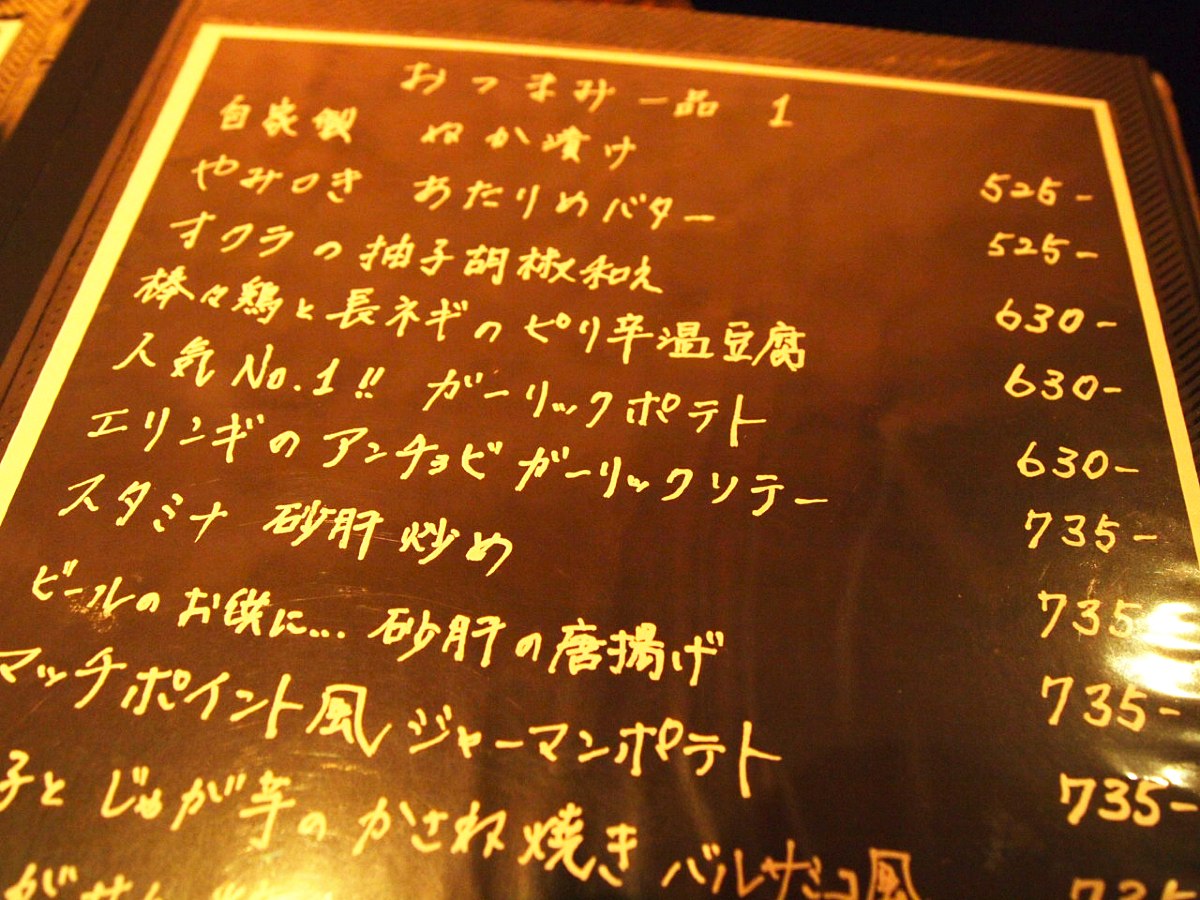 おつまみ一品 1
自家製 ぬか漬け 525-
やみつき あたりめバター 525-
オクラの柚子胡椒和え 630-
棒々鶏と長ネギのピリ辛温豆腐 630-
人気No.1!! ガーリックポテト 630-
エリンギのアンチョビガーリックソテー 735-
スタミナ 砂肝炒め 735-
ビールのお供に... 砂肝の唐揚げ 735-
マッチポイント風ジャーマンポテト 735-
子とじゃが芋のかさね焼き バルサミコ風 735